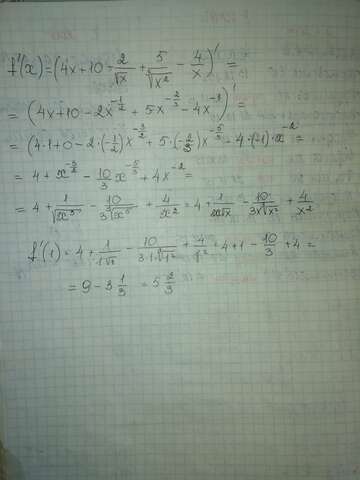 f'(x) = (4x + 10 - 2/√x + 5/∛x² - 4/x)' =
= (4x + 10 - 2x^(-1/2) + 5x^(-2/3) - 4x^(-1))' =
= (4·1 + 0 - 2·(-1/2)x^(-3/2) + 5·(-2/3)x^(-5/3) - 4·(-1)·x^(-2) =
= 4 + x^(-3/2) - 10/3 x^(-5/3) + 4x^(-2) =
= 4 + 1/√x³ - 10/3∛x⁵ + 4/x² = 4 + 1/x√x - 10/3x∛x² + 4/x²
f'(1) = 4 + 1/1·√1 - 10/3·1·∛1² + 4/1² = 4 + 1 - 10/3 + 4 =
= 9 - 3 1/3 = 5 2/3